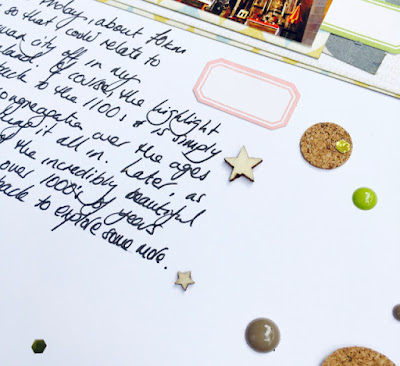 today, about form
so that I could relate to
city off in my
island. Of course, the highlight
back to the 1100s. It is simply
congregation over the ages
it all in. Later as
of the incredibly beautiful
over 1000s of years
back to explore some more.